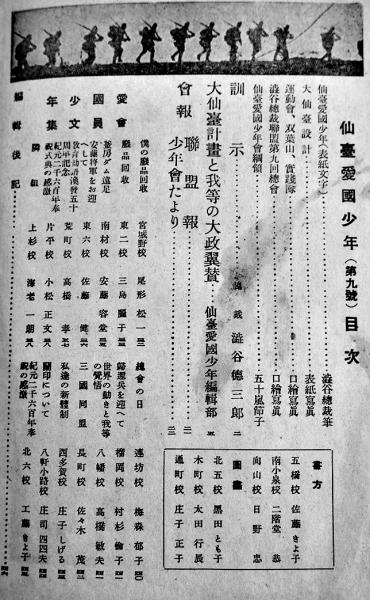 仙臺愛國少年（第九號）目次
仙臺愛國少年（表紙文字）……澁谷總裁筆
大仙臺設計……表紙寫眞
運動會、双葉山、實踐隊……口繪寫眞
澁谷總裁聯盟第九回總會……口繪寫眞
仙臺愛國少年會綱領……五十嵐節子
訓示……總裁 澁谷德三郎
大仙臺計畫と我等の大政翼賛 仙臺愛國少年編輯部
聯盟報
會報 少年會たより
愛國少年
會員文集
僕の廢品回收 宮城野校 尾形松一
廢品回收 東二校 三島
釜房ダム遠足 南材校 安藤容堂
安藤將軍をお迎へして 東六校 佐藤健
荒町校 高橋孝
紀元二千六百年奉祝式典の感激 片平校 小松正文
隣組 上杉校 海老一朗
總會の日 連坊校 梅森郁子
歸還兵を迎へて 榴岡校 村杉倫子
世界の動きと我等 八幡校 高橋敏夫
三國同盟 長町校 佐々木茂
私達の新體制 西多賀校 庄子しげる
八軒小路校 庄司四四夫
紀元二千六百年奉祝の感激 北六校 工藤きよ子
編輯後記
書方
五橋校 佐藤きよ子
南小泉校 二階堂恭
向山校 日野忠
圖畫
北五校 黒田とも子
木町校 太田行辰
通町校 庄子正子